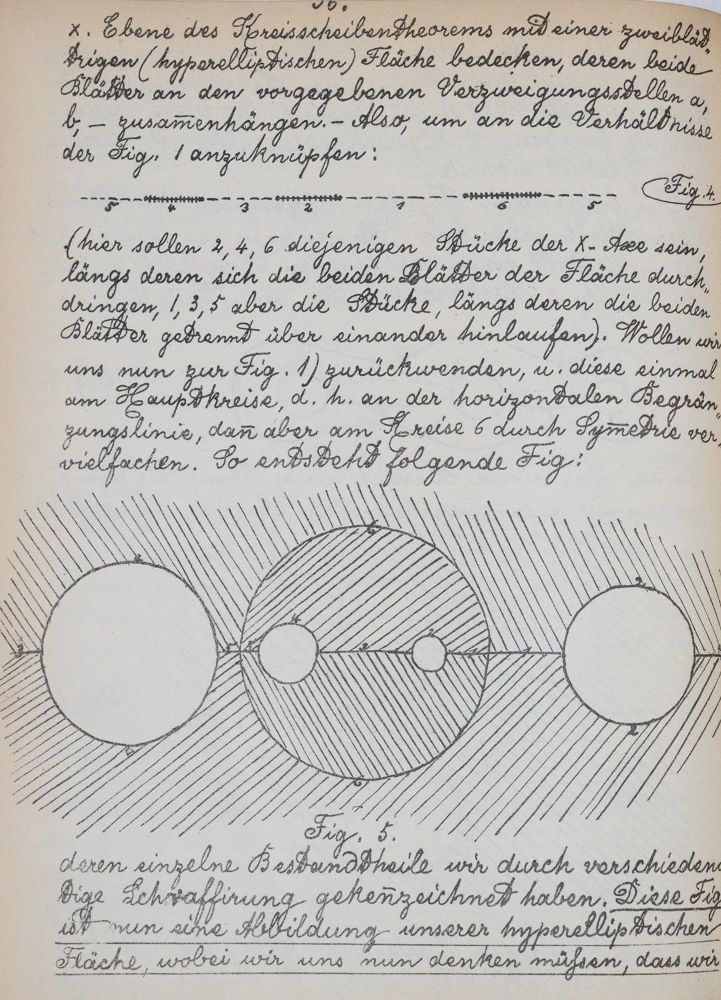 x. Ebene des Kreisscheibentheorems mit einer zweiblät-
trigen (hyperelliptischen) Fläche bedecken, deren beide
Blätter an den vorgegebenen Verzweigungsstellen a,
b, – zusam̅enhängen. – Also, um an die Verhältnisse
der Fig. 1 anzuknüpfen:
Fig. 4.
5 4 3 2 1 6 5
(hier sollen 2, 4, 6 diejenigen Stücke der X-Axe sein,
längs deren sich die beiden Blätter der Fläche durch-
dringen, 1, 3, 5 aber die Stücke, längs deren die beiden
Blätter getrennt über einander hinlaufen). Wollen wir
uns nun zur Fig. 1) zurückwenden, u. diese einmal
am Hauptkreise, d. h. an der horizontalen Begrän-
zungslinie, dan̅ aber am Kreise 6 durch Sym̅etrie ver-
vielfachen. So entsteht folgende Fig:
6
4 2
4 2
3 5 5 3 1 1
6 2
6
Fig. 5.
deren einzelne Bestandtheile wir durch verschieden
tige Schraffirung geken̅zeichnet haben. Diese Fig
ist nun eine Abbildung unserer hyperelliptischen
Fläche, wobei wir uns nun denken müssen, dass wir